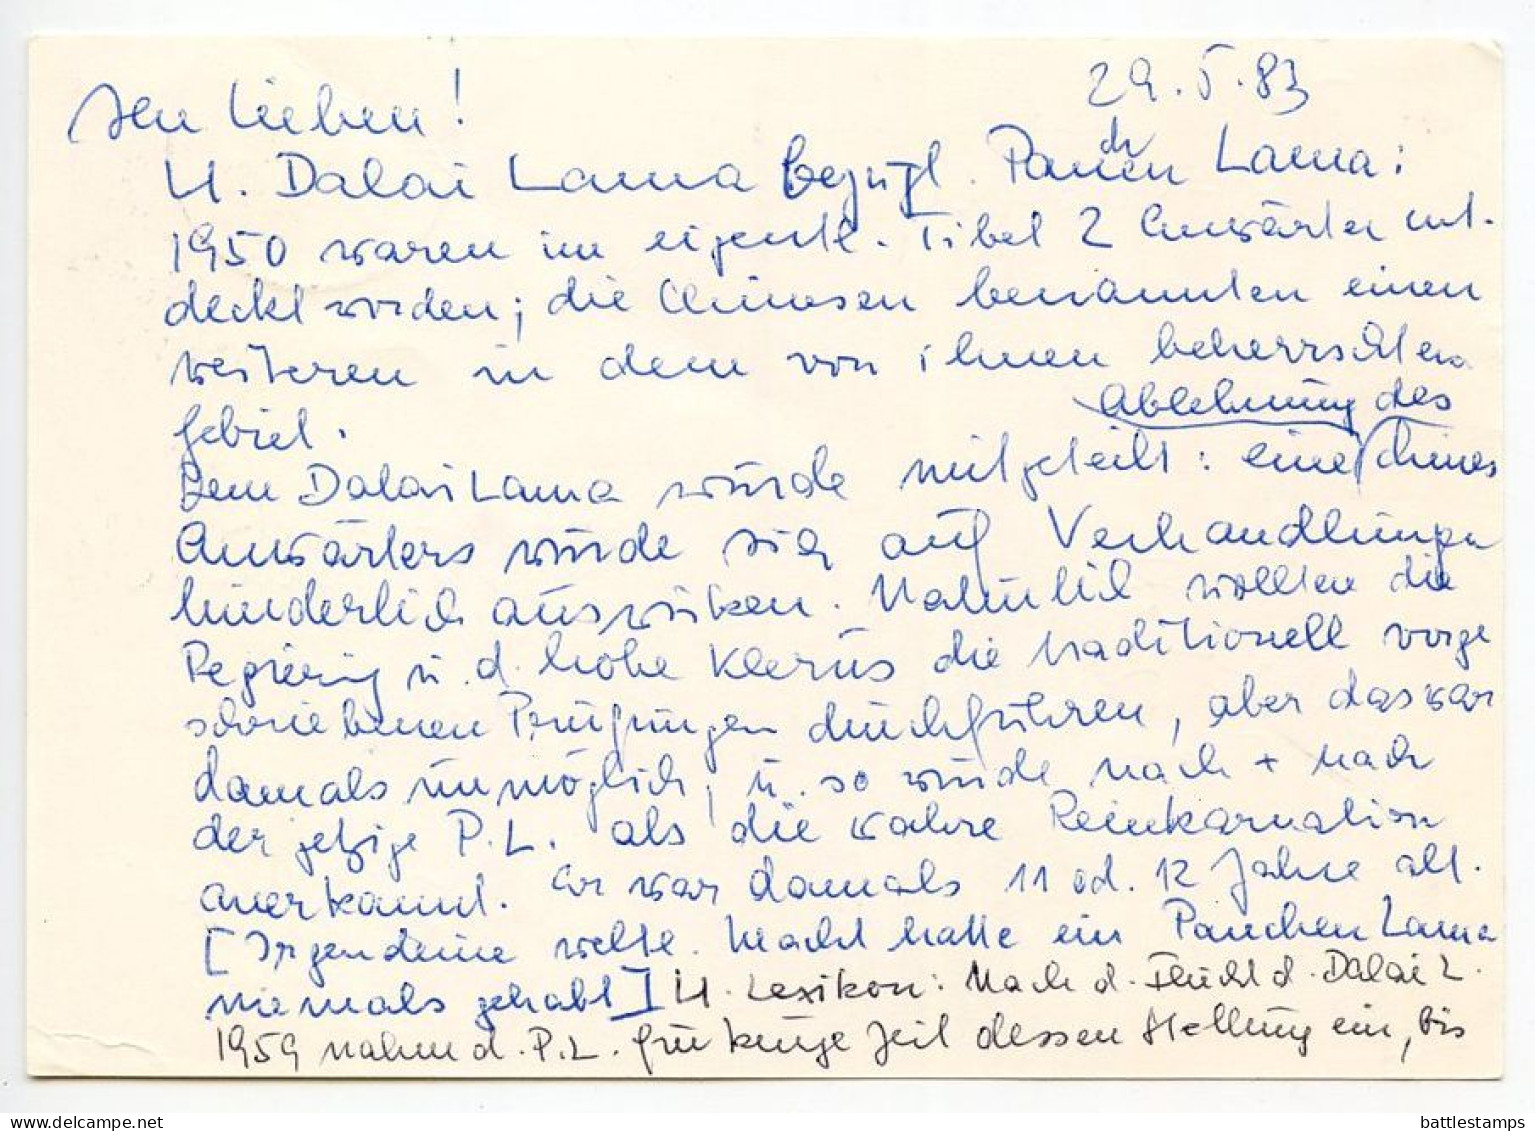 29.5.83
Ihr Lieben!
Lt. Dalai Lama bezügl. Panchen Lama:
1950 waren im eigentl. Tibet 2 Anwärter ent-
deckt worden; die Chinesen benannten einen
weiteren in dem von ihnen beherrschten
Gebiet.
Ablehnung des
Dem Dalai Lama wurde mitgeteilt: eine chines
Anwärters würde sich auf Verhandlungen
hinderlich auswirken. Natürlich wollten die
Regierung u. d. hohe Klerus die traditionell vorge
schriebenen Prüfungen durchführen, aber das war
damals unmöglich, u. so wurde nach + nach
der jetzige P.L. als die wahre Reinkarnation
anerkannt. Er war damals 11 od. 12 Jahre alt.
[Irgendeine weltl. Macht hatte ein Panchen Lama
niemals gehabt] Lt. Lexikon: Nach d. Flucht d. Dalai L.
1959 nahm d. P.L. für kurze Zeit dessen Stellung ein, bis
delcampe.net
battlestamps